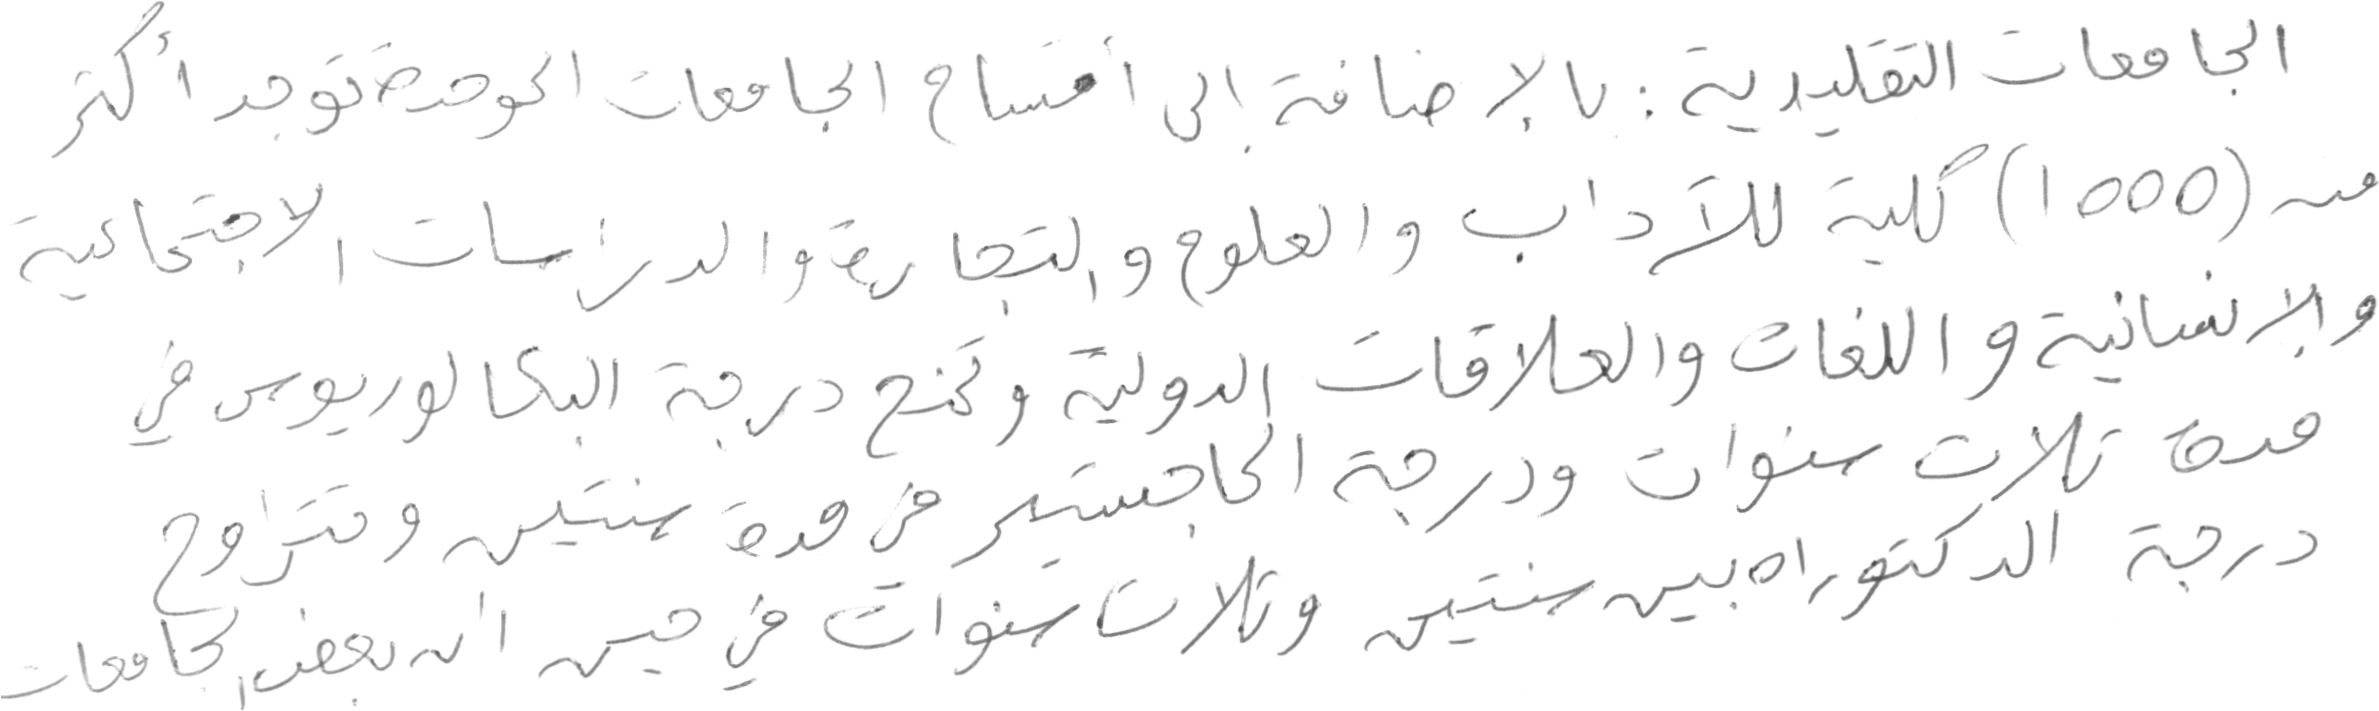 الجامعات التقليدية: بالإضافة إلى أقسام الجامعات الموحدة توجد أكثر
من (1000) كلية للآداب والعلوم والتجارة والدراسات الاجتماعية
والإنسانية واللغات والعلاقات الدولية وتمنح درجة البكالوريوس في
مدة ثلاث سنوات ودرجة الماجستير في مدة سنتين وتتراوح
درجة الدكتوراه بين سنتين وثلاث سنوات في حين أن بعض الجامعات